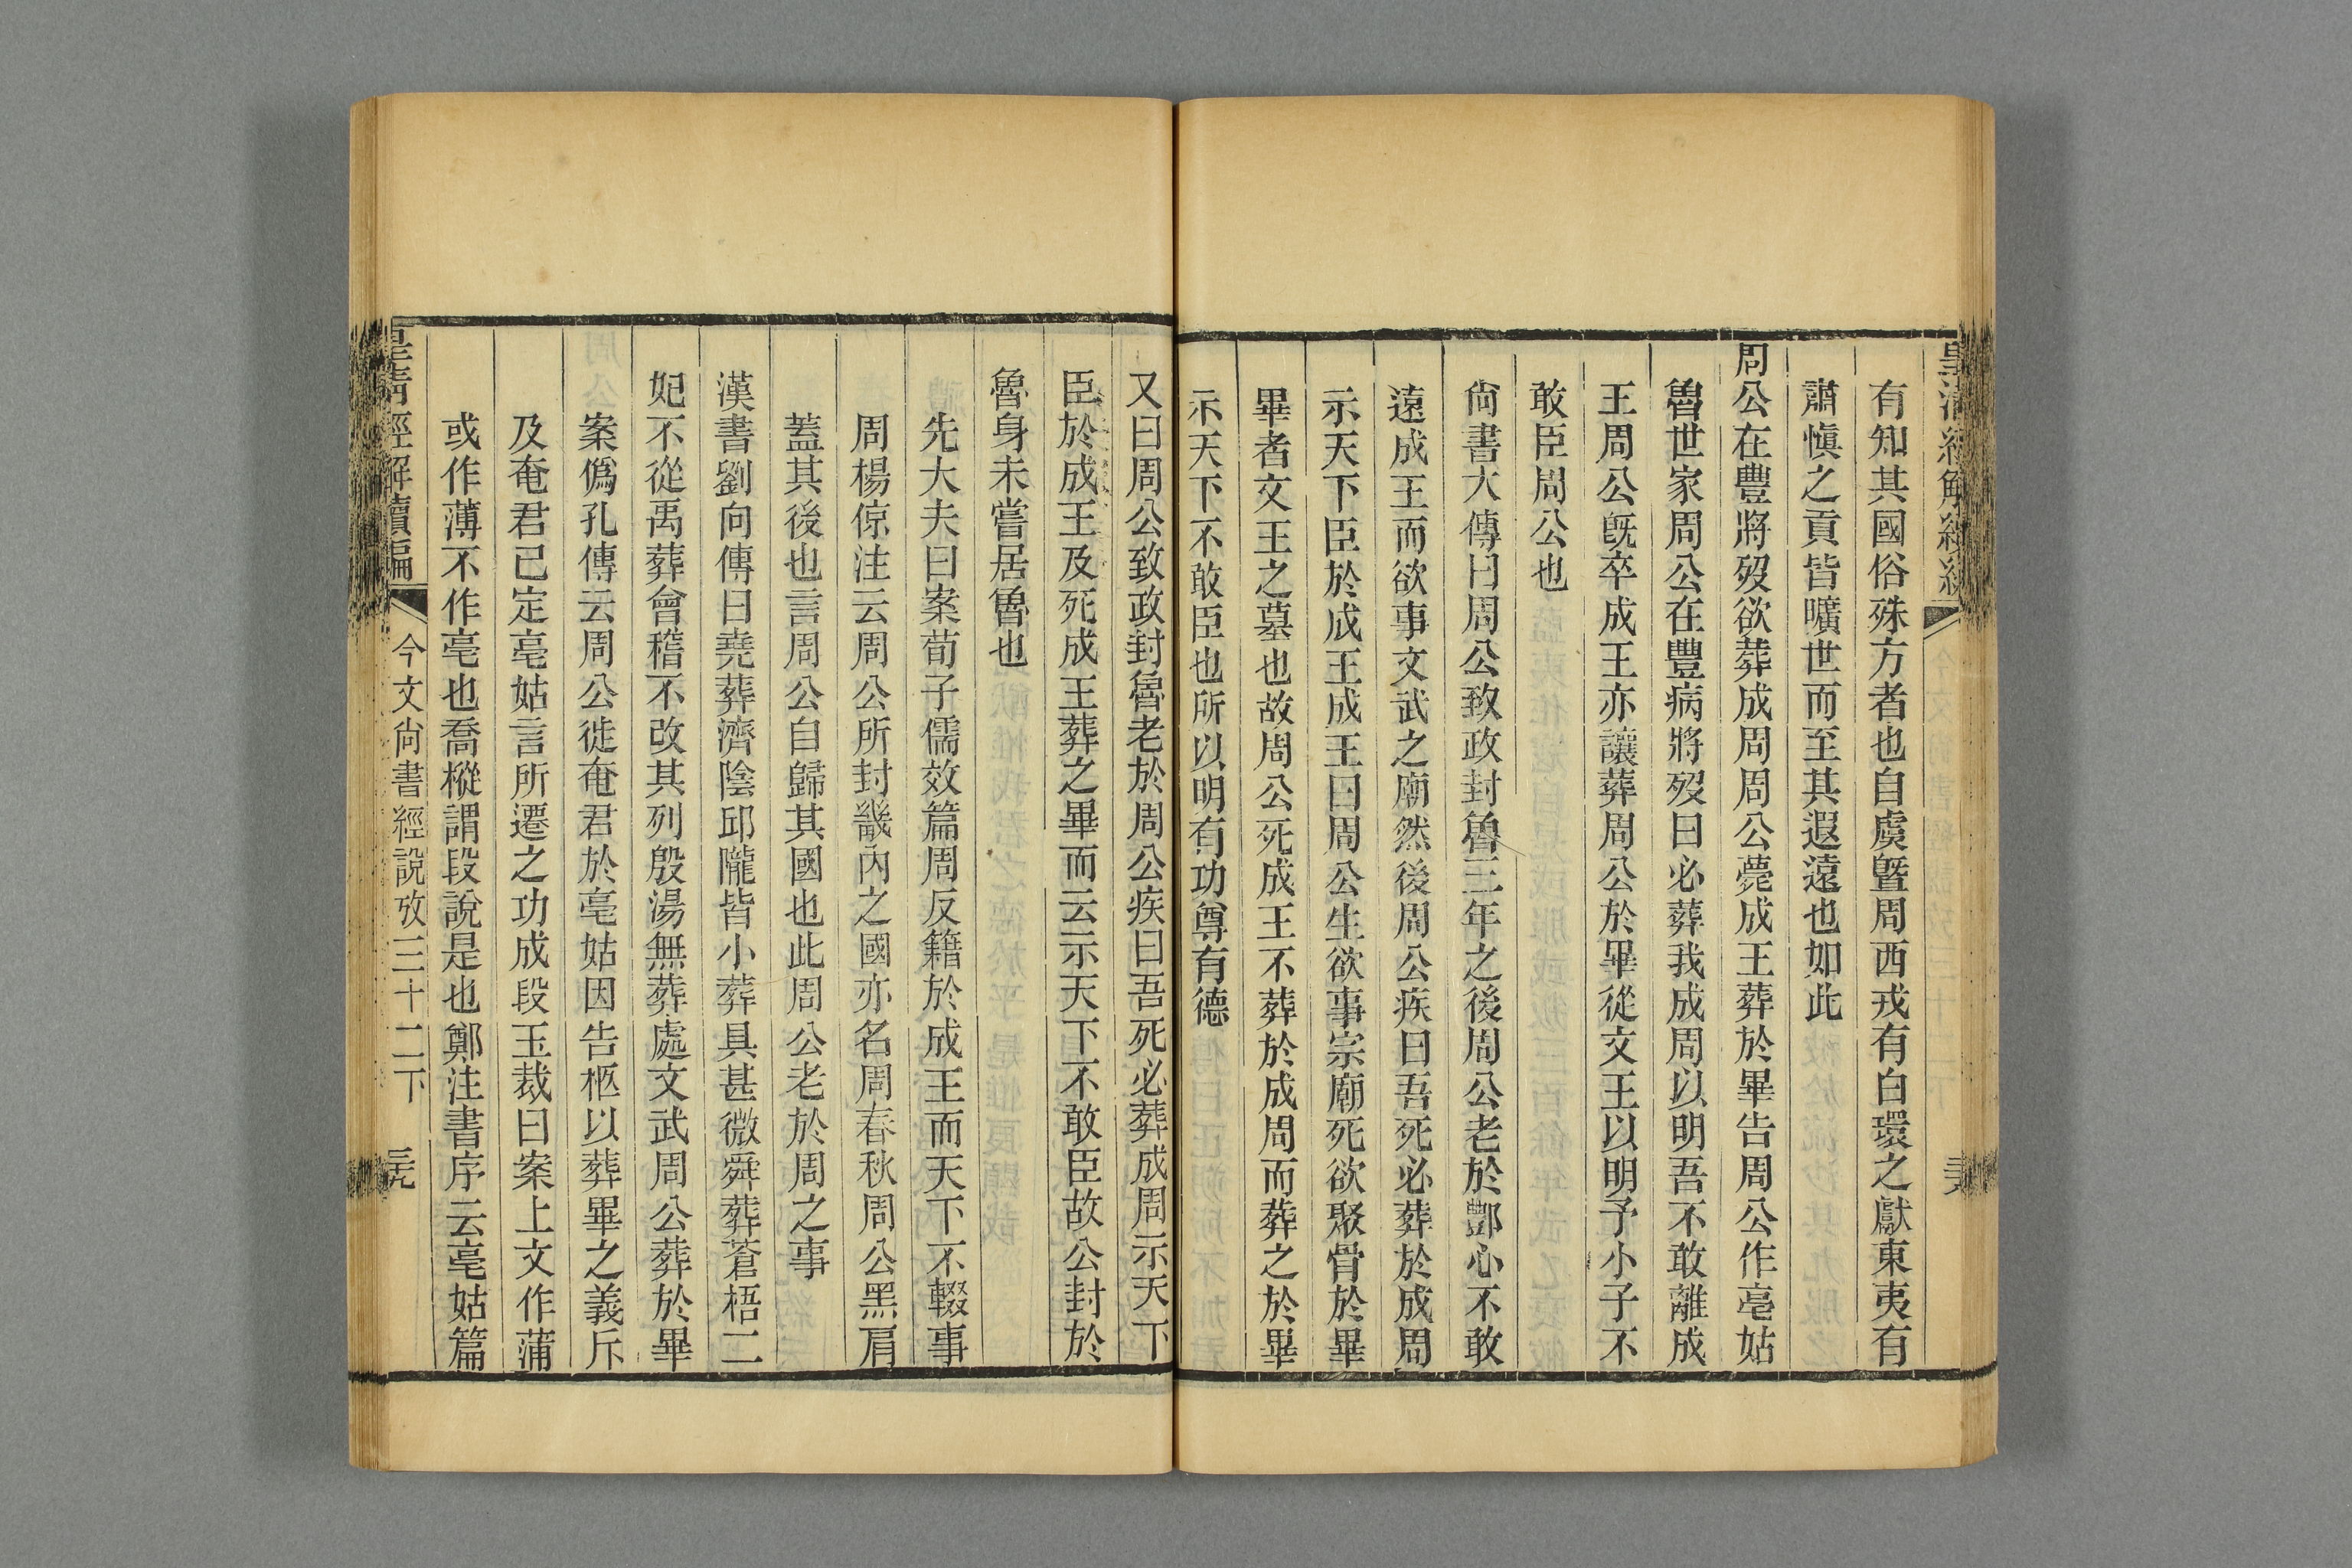 有知其國俗殊方者也自虞曁周西戎有白環之獻東夷有
肅愼之貢皆曠世而至其遐遠也如此
周公在豐將歿欲葬成周周公薨成王葬於畢告周公作亳姑
魯世家周公在豐病將歿曰必葬我成周以明吾不敢離成
王周公旣卒成王亦讓葬周公於畢從文王以明予小子不
敢臣周公也
尙書大傳曰周公致政封魯三年之後周公老於酆心不敢
遠成王而欲事文武之廟然後周公疾曰吾死必葬於成周
示天下臣於成王成王曰周公生欲事宗廟死欲聚骨於畢
畢者文王之墓也故周公死成王不葬於成周而葬之於畢
示天下不敢臣也所以明有功尊有德
又曰周公致政封魯老於周公疾曰吾死必葬成周示天下
臣於成王及死成王葬之畢而云示天下不敢臣故公封於
魯身未嘗居魯也
先大夫曰案荀子儒效篇周反籍於成王而天下不輟事
周楊倞注云周公所封畿內之國亦名周春秋周公黑肩
蓋其後也言周公自歸其國也此周公老於周之事
漢書劉向傳曰堯葬濟陰邱隴皆小葬具甚微舜葬蒼梧二
妃不從禹葬會稽不改其列殷湯無葬處文武周公葬於畢
案僞孔傳云周公徙奄君於亳姑因告柩以葬畢之義斥
及奄君已定亳姑言所遷之功成段玉裁曰案上文作蒲
或作薄不作亳也喬樅謂段說是也鄭注書序云亳姑篇
皇清經解續編
今文尙書經說攷三十二下
三九